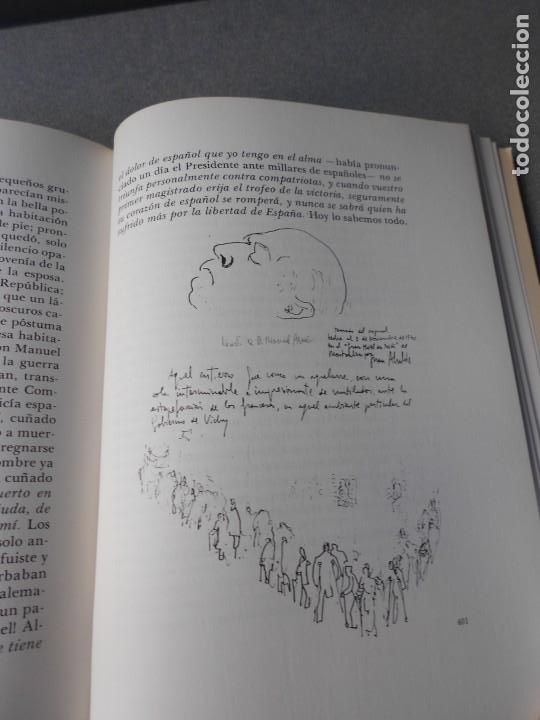 equeños gru-
parecían mis-
n la bella po-
a habitación
le pie; pron-
quedó, solo
silencio opa-
ovenía de la
la esposa.
República;
que un lá-
oscuros ca-
e póstuma
esa habita-
on Manuel
la guerra
an, trans-
ente Com-
icía espa-
, cuñado
o a muer-
regnarse
ombre ya
cuñado
uerto en
iuda, de
mí. Los
solo an-
fuiste y
rbaban
alema-
un pa-
el! Al-
e tiene
el dolor de español que yo tengo en el alma —había pronun-
ciado un día el Presidente ante millares de españoles— no se
triunfa personalmente contra compatriotas, y cuando vuestro
primer magistrado erija el trofeo de la victoria, seguramente
su corazón de español se romperá, y nunca se sabrá quien ha
sufrido más por la libertad de España. Hoy lo sabemos todo.
D. Manuel
del original
el 3 de noviembre de 1940
en el "Gran Hotel du Midi" de
Montauban por
Aquel fue como un aquelarre, con una
cola interminable e impresionante de ante la
estupefacción de los franceses, en aquel ambiente particular del
Gobierno de Vichy
601
todocoleccion